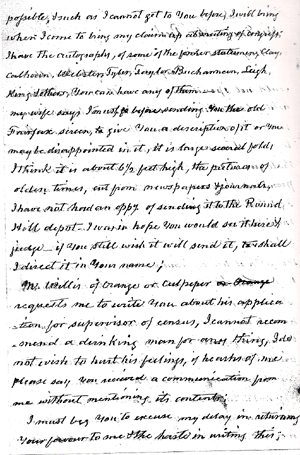 possible, & such as I cannot get to You before, I will bring
when I come to bring my claim up at meeting of congress;
I have the autographs, of some of the former statesmen, Clay,
Calhoun, Webster, Tyler, Taylor, Buchannon, Leigh,
King & others, You can have any of them
my wife says I must before sending You the old
Fairfax screen, to give You a description of it or You
may be disappointed in it, it is large several folds,
I think it is about 6½ feet high, the pictures of
olden times, cut from newspapers & journals,
I have not had an oppy of sending it to the Round
Hill depot. I was in hope You would see it here &
judge — if You still wish it will send it, & shall
I direct it in Your name;
Mr. Willis of Orange or Culpeper
requests me to write You about his applica
tion for supervisor of census, I cannot recom
mend a drinking man for any thing, I do
not wish to hurt his feelings, if he asks of me
please say You received a communication from
me without mentioning its contents;
I must beg You to excuse my delay in returning
Your favour to me & the haste in writing this;